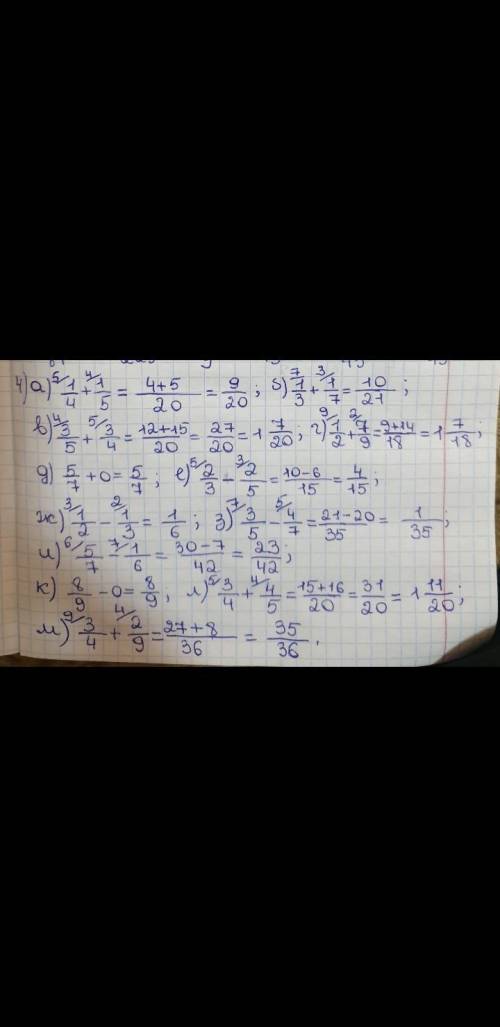 4) а) ⁵⁄1/4 + ⁴⁄1/5 = (4+5)/20 = 9/20; б) ⁷⁄1/3 + ³⁄1/7 = 10/21;
в) ⁴⁄3/5 + ⁵⁄3/4 = (12+15)/20 = 27/20 = 1 7/20; г) ⁹⁄1/2 + ²⁄7/9 = (9+14)/18 = 1 7/18;
д) 5/7 + 0 = 5/7; е) ⁵⁄2/3 − ³⁄2/5 = (10−6)/15 = 4/15;
ж) ³⁄1/2 − ²⁄1/3 = 1/6; з) ⁷⁄3/5 − ⁵⁄4/7 = (21−20)/35 = 1/35;
и) ⁶⁄5/7 − ⁷⁄1/6 = (30−7)/42 = 23/42;
к) 8/9 − 0 = 8/9, л) ⁵⁄3/4 + ⁴⁄4/5 = (15+16)/20 = 31/20 = 1 11/20;
м) ⁹⁄3/4 + ⁴⁄2/9 = (27+8)/36 = 35/36.